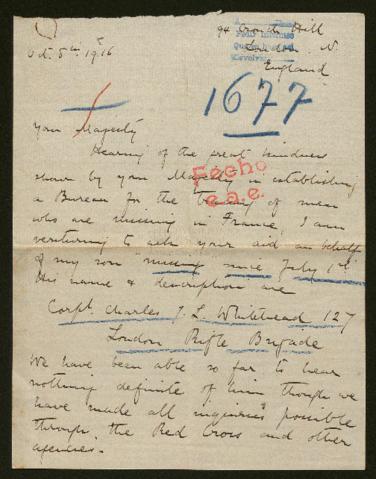 94 Crouch Hill
Oct. 5th 1916
London. N.
England
1677
Your Magesty
Hearing of the great kindness
shown by your Magesty in establishing
Fecho
e.a.e.
a Bureau for the tracing of men
who are missing in France, I am
venturing to ask your aid on behalf
of my son "missing since July 1st"
His name & description are
Corpl. Charles J. L. Whitehead 127
London Rifle Brigade
We have been able so far to hear
nothing definite of him though we
have made all inquiries possible
through the Red Cross and other
agencies.